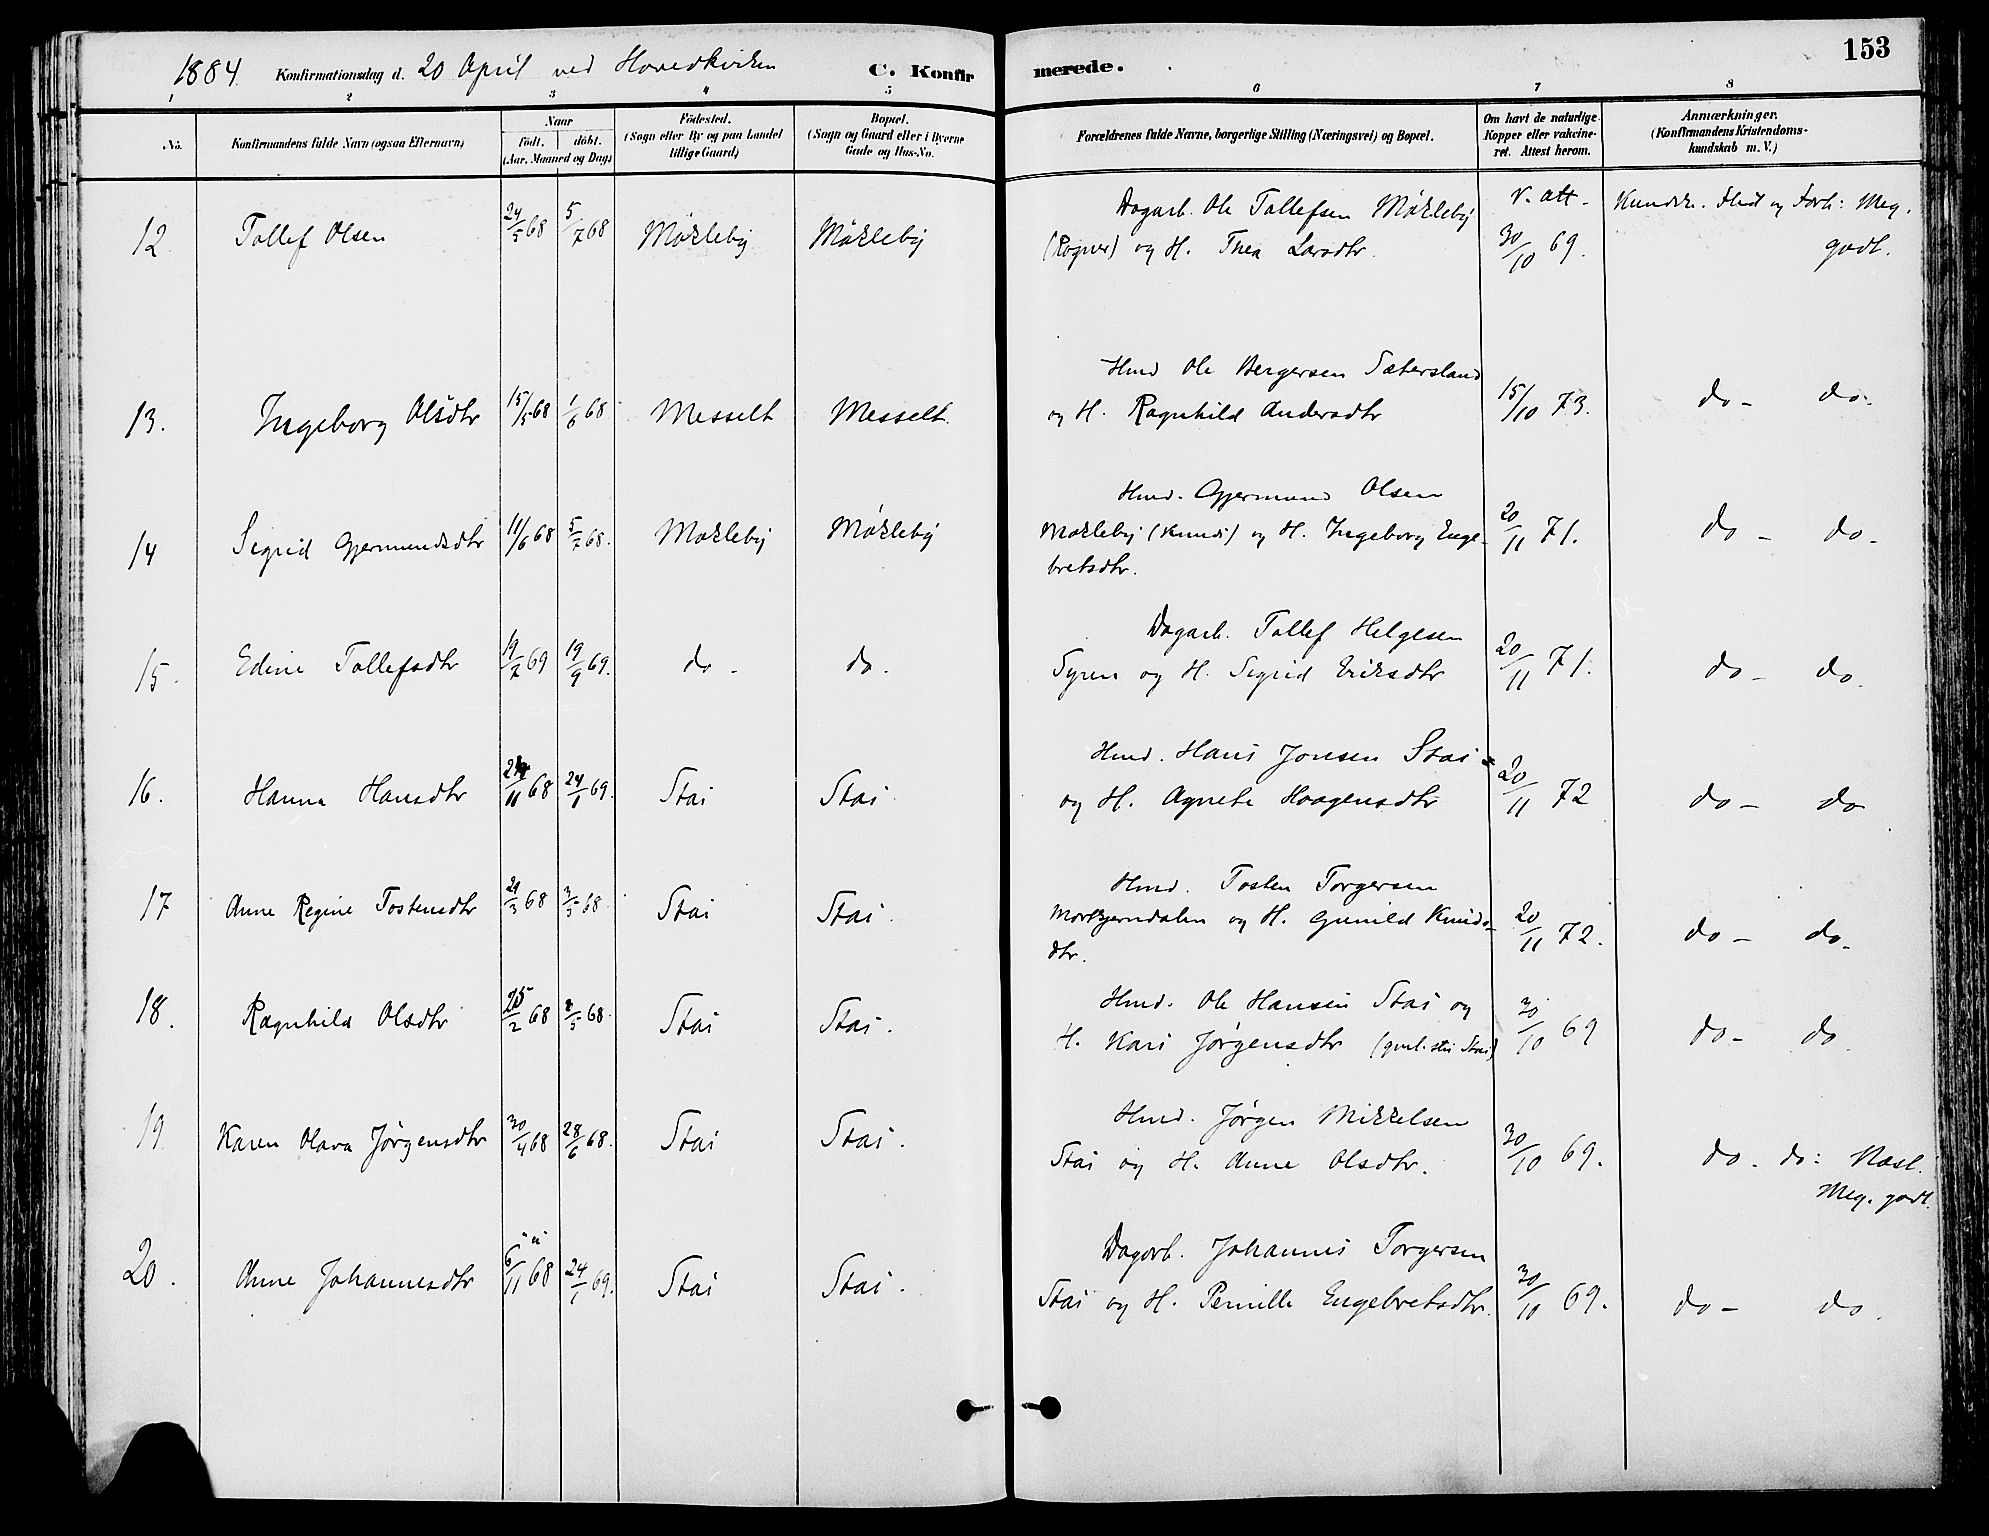 1884 Konfirmationsdag d. 20 April ved Hovedkirken C. Konfirmerede. 153
1 2 3 4 5 6 7 8
No. Konfirmandens fulde Navn (ogsaa Efternavn) Naar födt. döbt. (Aar, Maaned og Dag) Födested. (Sogn eller By og paa Landet tillige Gaard) Bopæl. (Sogn og Gaard eller i Byerne Gade og Hus-No. Forældrenes fulde Navne, borgerlige Stilling (Næringsvei) og Bopæl. Om havt de naturlige Kopper eller vakcineret. Attest herom. Anmærkninger. (Konfirmandens Kristendomskundskab m. V.)
12 Tollef Olsen 24/5 68 5/7 68 Mökleby Mökleby Dagarb. Ole Tollefsen Mökleby V. att. Kundsk. Flid og Forh: Meg.
(Rogner) og H. Thea Larsdtr. 30/10 69. godt.
13. Ingeborg Olsdtr 15/5 68 1/6 68 Messelt Messelt. Hmd Ole Bergersen Sætersland
og H. Ragnhild Andersdtr 15/10 73. do - do.
14 Sigrid Gjermundsdtr 11/6 68 5/7 68. Mökleby Mökleby Hmd. Gjermund Olsen
Mökleby (Knuds) og H. Ingeborg Enge- 20/11 71. do - do -
bretsdtr.
15. Edine Tollefsdtr 19/7 69 19/9 69. do - do. Dagarb. Tollef Helgesen
Syren og H. Sigrid Eriksdtr 20/11 71. do - do.
16. Hanna Hansdtr /11 68 24/1 69. Stai Stai Hmd. Hans Jonsen Stai
og H. Agnete Haagensdtr 20/11 72 do - do
17 Anne Regine Tostensdtr 29/3 68 3/5 68. Stai Stai. Hmd. Tosten Torgersen
Morkjerndalen og H. Gunild Knuds- 20/11 72. do - do -
dtr.
18. Ragnhild Olsdtr 25/2 68 /5 68. Stai Stai. Hmd. Ole Hansen Stai og
H. Kari Jørgensdtr 30/10 69 do - do
19 Karen Olava Jørgensdtr 30/4 68 28/6 68. Stai Stai. Hmd. Jørgen Mikkelsen
Stai og H. Anne Olsdtr. 30/10 69. do. do: Næst.
Meg. godt.
20. Anne Johannesdtr 6/11 68 24/1 69. Stai Stai. Dagarb. Johannes Torgersen
Stai og H. Pernille Engebretsdtr. 30/10 69. do - do.